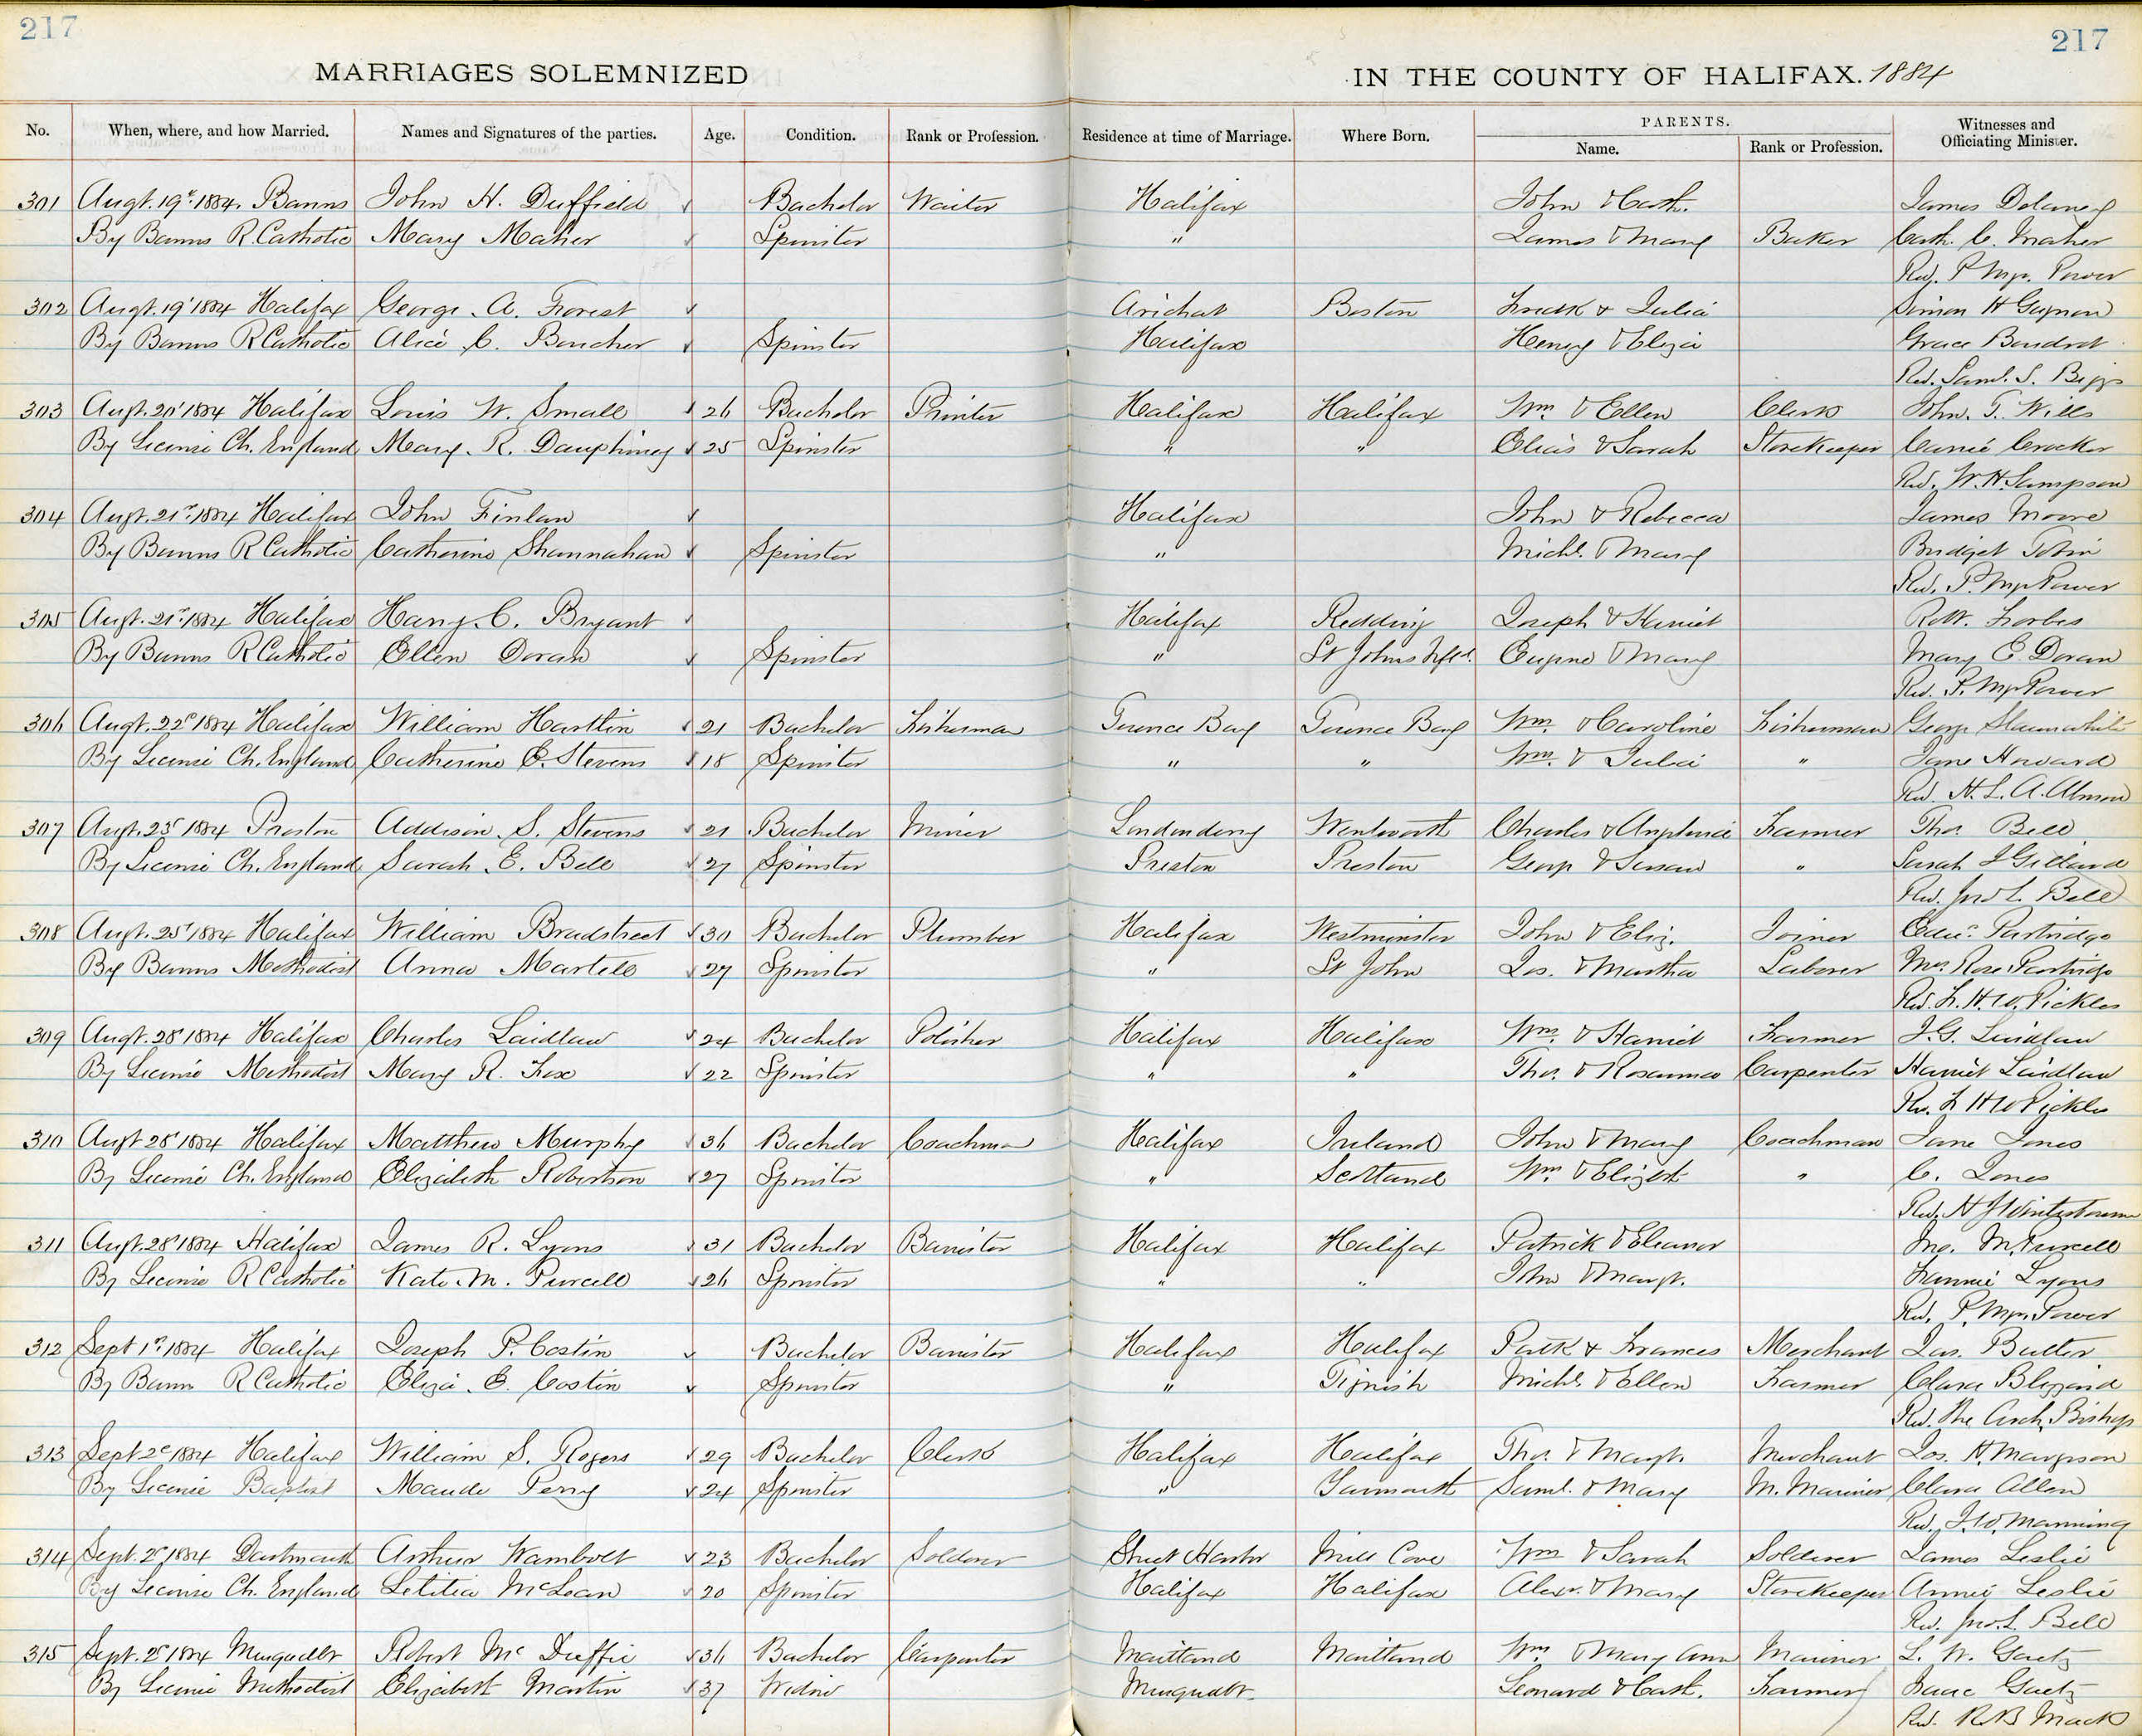 217
217
MARRIAGES SOLEMNIZED IN THE COUNTY OF HALIFAX. 1884
PARENTS.
No. When, where, and how Married. Names and Signatures of the parties. Age. Condition. Rank or Profession. Residence at time of Marriage. Where Born. Name. Rank or Profession. Witnesses and Officiating Minister.
301 Augt. 19th 1884. Banns John H. Duffield Bachelor Waiter Halifax John & Cath. James Delaney
By Banns R. Catholic Mary Maher Spinster " James & Mary Baker Cath. C. Maher
Rev. P. Power
302 Augt. 19 1884 Halifax George A. Forest Arichat Boston Fredk & Julia Simon H
By Banns R Catholic Alice C. Boucher Spinster Halifax Henry & Eliza Grace Boudrot
Rev. Saml. S. Biggs
303 Augt. 20 1884 Halifax Louis W. Small 26 Bachelor Printer Halifax Halifax Wm & Ellen Clerk John. T. Wills
By License Ch. England Mary R. Dauphiney 25 Spinster " " Elias & Sarah Storekeeper Carrie Crocker
Rev. W. H. Sampson
304 Augt. 21st 1884 Halifax John Finlan Halifax John & Rebecca James Moore
By Banns R Catholic Catherine Shannahan Spinster " Michl. & Mary Bridget Tobin
Rev. P. Power
305 Augt. 21st 1884 Halifax Harry C. Bryant Halifax Redding Joseph & Harriet Forbes
By Banns R Catholic Ellen Doran Spinster " St Johns Nfld. Eugene & Mary Mary E. Doran
Rev. P. Power
306 Augt. 22d 1884 Halifax William Hartlin 21 Bachelor Fisherman Terence Bay Terence Bay Wm. & Caroline Fisherman George Slaunwhite
By License Ch. England Catherine E. Stevens 18 Spinster " " Wm. & Julia " Jane Howard
Rev. H. L. A. Almon
307 Augt. 23d 1884 Preston Addison S. Stevens 21 Bachelor Miner Londonderry Wentworth Charles & Farmer Thos Bell
By License Ch. England Sarah E. Bell 27 Spinster Preston Preston George & Susan " Sarah J Gilland
Rev. Jno L. Bell
308 Augt. 25t 1884 Halifax William Bradstreet 30 Bachelor Plumber Halifax Westminster John & Eliz. Joiner Partridge
By Banns Methodist Anna Martell 27 Spinster " St John Jas. & Martha Laborer Mrs. Rose Partridge
Rev. F. H. W. Pickles
309 Augt. 28 1884 Halifax Charles Laidlaw 24 Bachelor Polisher Halifax Halifax Wm. & Harriet Farmer J. G. Laidlaw
By License Methodist Mary R. Fox 22 Spinster " " Thos. & Rosanna Carpenter Harriet Laidlaw
Rev. F H W Pickles
310 Augt 28 1884 Halifax Matthew Murphy 36 Bachelor Coachman Halifax Ireland John & Mary Coachman Jane Jones
By License Ch. England Elizabeth Robertson 27 Spinster " Scotland Wm. & Elizbth " C. Jones
Rev. H J Winterbourne
311 Augt. 28 1884 Halifax James R. Lyons 31 Bachelor Barrister Halifax Halifax Patrick & Eleanor M. Purcell
By License R Catholic Kate M. Purcell 26 Spinster " " John & Margt. Fannie Lyons
Rev. P. Power
312 Sept 1st 1884 Halifax Joseph P. Costin Bachelor Barrister Halifax Halifax Patk & Frances Merchant Jas. Butler
By Banns R Catholic Eliza E. Costin Spinster " Tignish Michl. & Ellen Farmer Clara Blizzard
Rev. the Arch Bishop
313 Sept 2d 1884 Halifax William S. Rogers 29 Bachelor Clerk Halifax Halifax Thos. & Margt. Merchant Jos. H. Margeson
By License Baptist Maude Perry 24 Spinster " Yarmouth Saml. & Mary M. Mariner Clara Allen
Rev. J. W. Manning
314 Sept. 2d 1884 Dartmouth Arthur Wambolt 23 Bachelor Soldier Sheet Harbor Mill Cove Wm & Sarah Soldier James Leslie
By License Ch. England Letitia McLean 20 Spinster Halifax Halifax Alexr. & Mary Storekeeper Annie Leslie
Rev. Jno. L. Bell
315 Sept. 2d 1884 Musquodbt Robert Mc Duffie 36 Bachelor Carpenter Maitland Maitland Wm & Mary Ann Mariner L. W. Gaetz
By License Methodist Elizabeth Martin 37 Widow Musquodbt. Leonard & Cath. Farmer Isaac Gaetz
Rev. R B Mack